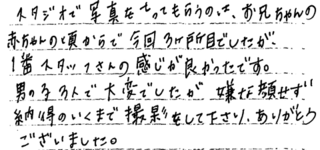 スタジオで写真をとってもらうのは、お兄ちゃんの
赤ちゃんの頃からで今回3か所目でしたが、
1番スタッフさんの感じが良かったです。
男の子3人で大変でしたが嫌な顔せず
納得のいくまで撮影をして下さい、ありがとう
ございました。